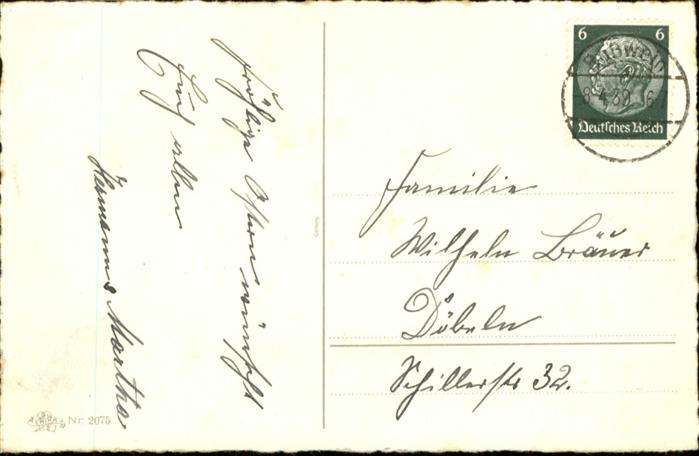 fröhliche Ostern wünscht
Euch allen
Hermann u. Martha
Nr. 2075
6 6
8.4.39
Deutsches Reich
Familie
Wilhelm Bräuer
Döbeln
Schillerstr 32.